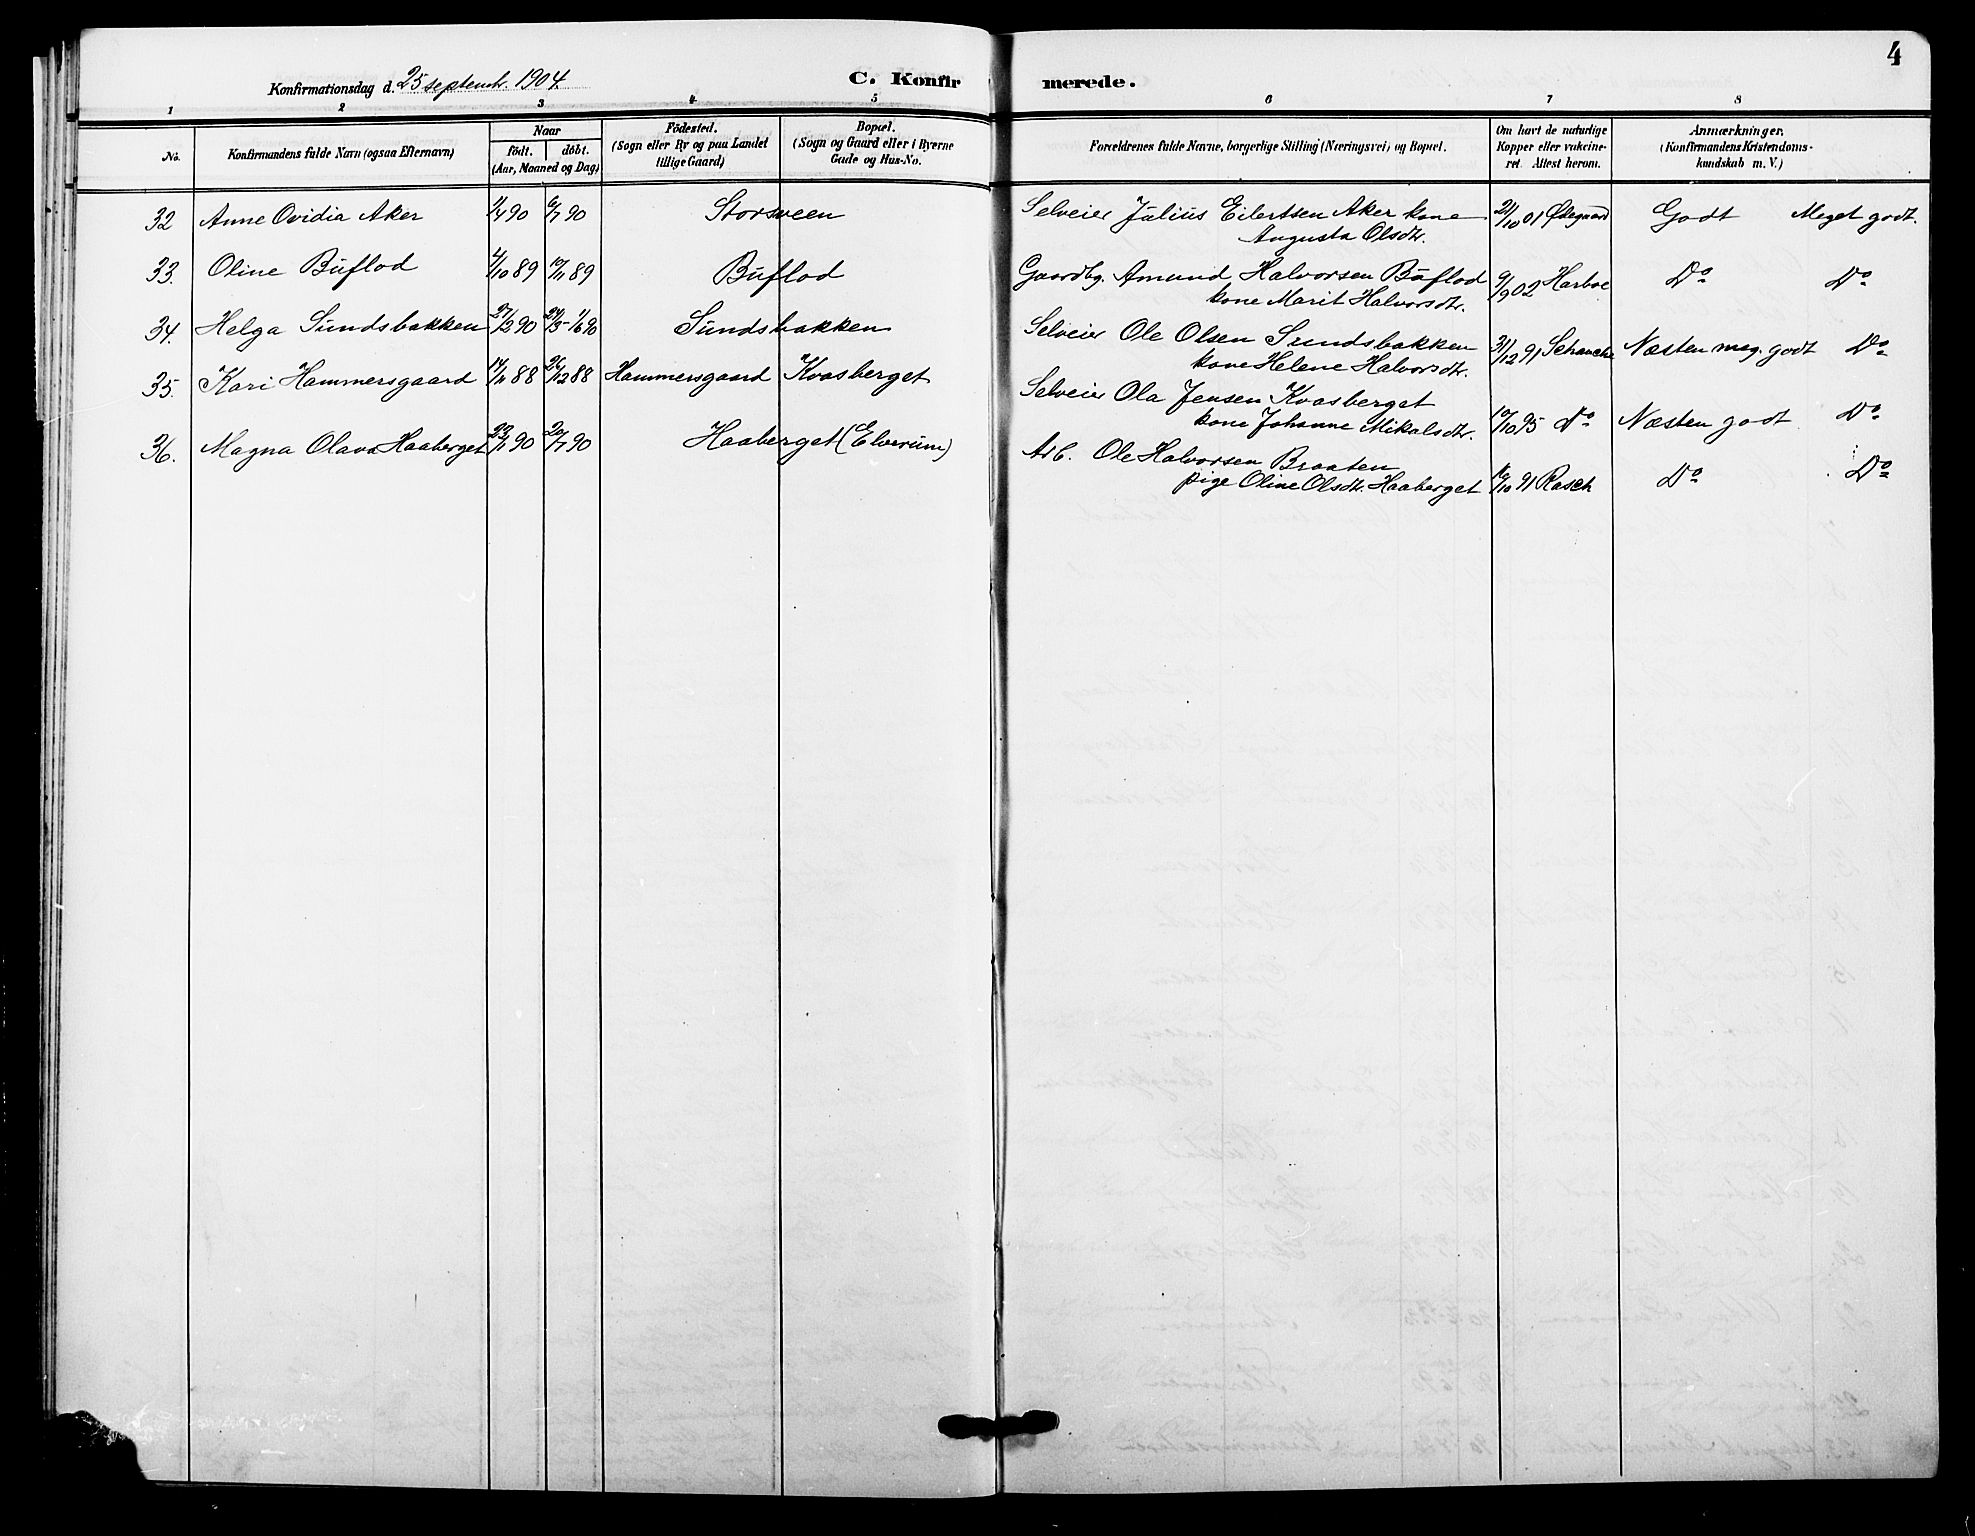 4
Konfirmationsdag d. 25 septembr. 1904.
C. Konfirmerede.
1 2 3 4 5 6 7 8
No.
Konfirmandens fulde Navn (ogsaa Efternavn)
Naar
födt. döbt.
(Aar, Maaned og Dag)
Födested.
(Sogn eller By og paa Landet
tillige Gaard)
Bopæl.
(Sogn og Gaard eller i Byerne
Gade og Hus-No.
Forældrenes fulde Navne, borgerlige Stilling (Næringsvei) og Bopæl.
Om havt de naturlige
Kopper eller vakcine-
ret. Attest herom.
Anmærkninger.
(Konfirmandens Kristendoms-
kundskab m. V.)
32 Anne Ovidia Aker 1/4 90 6/7 90 Storsveen Selveier Julius Eilertsen Aker kone 21/10 01 Ødegaard Godt Meget godt.
Augusta Olsdtr.
33. Oline Buflod 4/10 89 17/11 89 Buflod Gaardbg. Amund Halvorsen Buflod 9/9 02 Harboe Do Do
kone Marit Halvorsdtr.
34. Helga Sundsbakken 27/2 90 29/5 - 1/6 90 Sundsbakken Selveier Ole Olsen Sundsbakken 31/12 91 Schancke Næsten meg. godt Do
kone Helene Halvorsdtr.
35. Kari Hammersgaard 17/11 88 26/12 88 Hammersgaard Kvasberget Selveier Ola Jensen Kvasberget
kone Johanne Mikalsdtr. 10/10 95 Do Næsten godt Do
36. Magna Olava Haaberget 23/1 90 20/7 90 Haaberget (Elverum) Arb. Ole Halvorsen Braaten
pige Oline Olsdtr. Haaberget 16/10 91 Rasch Do Do